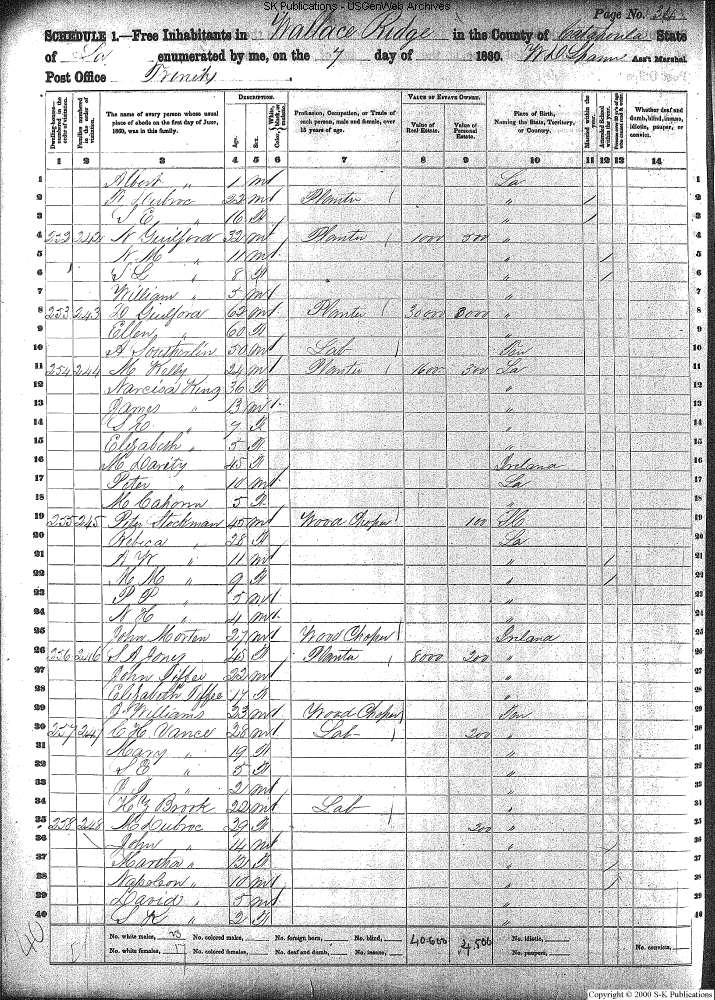 SK Publications - USGenWeb Archives
Page No. 36
SCHEDULE 1.—Free Inhabitants in Wallace Ridge in the County of Catahoula State
of La enumerated by me, on the 7 day of 1860. Ass't Marshal.
Post Office Trinity.
DESCRIPTION. VALUE OF ESTATE OWNED.
Dwelling-houses—numbered in the order of visitation.
Families numbered in the order of visitation.
The name of every person whose usual place of abode on the first day of June, 1860, was in this family.
Age.
Sex.
Color, White, black, or mulatto.
Profession, Occupation, or Trade of each person, male and female, over 15 years of age.
Value of Real Estate.
Value of Personal Estate.
Place of Birth, Naming the State, Territory, or Country.
Married within the year.
Attended School within the year.
Whether deaf and dumb, blind, insane, idiotic, pauper, or convict.
1 2 3 4 5 6 7 8 9 10 11 12 13 14
1 Albert " 1 m La 1
2 Dubroc 22 m Planter " / 2
3 S E " 16 f " / 3
4 252 242 N Guilford 32 m Planter 1000 500 " 4
5 N M " 11 m " / 5
6 S L " 8 f " / 6
7 William " 5 m " 7
8 253 243 H Guilford 62 m Planter 30000 3000 " 8
9 Ellen " 60 f " 9
10 A Southerlin 50 m Lab Ten 10
11 254 244 M Kelly 24 m Planter 1600 300 La 11
12 Narcisa King 36 f " 12
13 James " 13 m " 13
14 S E " 7 f " 14
15 Elizabeth " 5 f " 15
16 M Darity 45 f Ireland 16
17 Peter " 10 m La 17
18 M Cahorn 5 f " 18
19 255 245 Peter Stockman 45 m Wood Choper 100 19
20 Rebica " 28 f La 20
21 A W " 11 m " / 21
22 M M " 9 f " / 22
23 P P " 5 m " 23
24 N H " 4 m " 24
25 John Morten 27 m Wood Choper Ireland 25
26 256 246 S A Jones 45 f Planta 8000 200 " 26
27 John Tiffee 22 m " 27
28 Elizabeth Tiffee 17 f " 28
29 J Williams 23 m Wood Choper Ten 29
30 257 247 C H Vance 28 m Lab 200 " 30
31 Mary " 19 f " 31
32 S E " 5 f " 32
33 " 2 m " 33
34 Brook 22 m Lab " 34
35 258 248 M Dubroc 39 f 200 " 35
36 John " 14 m " / 36
37 Martha " 12 f " / 37
38 Napoleon " 10 m " / 38
39 David " 5 m " 39
40 S K " 2 f " 40
No. white males, 23 No. colored males, No. foreign born, No. blind, 40.600 4,500 No. idiotic, No. convicts,
No. white females, 17 No. colored females, No. deaf and dumb, No. insane, No. paupers,
40
Copyright © 2000 S-K Publications